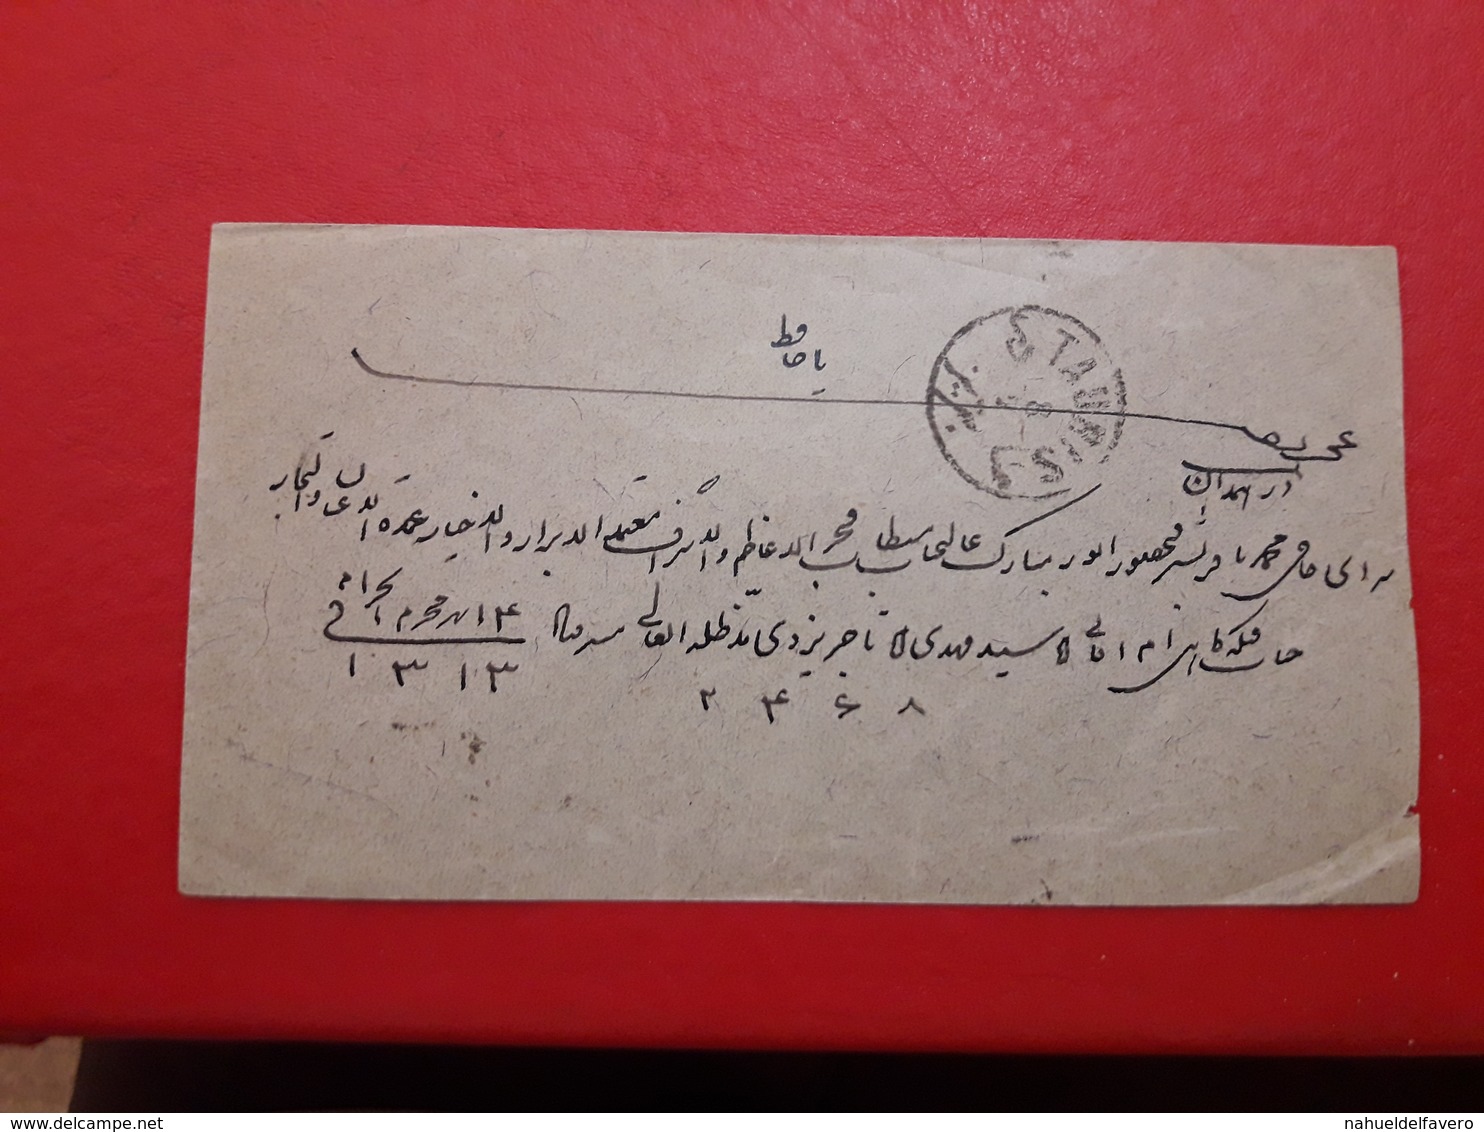 یا حافظ
TAURIS
تبریز
8
عریضه
در همدان
سرای حاجی محمد باقر بشرف حضور انور مبارک عالیجاب مستطاب فخر الاعاظم والاشراف معتمد الابرار والاخیار عمدة الاعیان والتجار
خان قبله گاهی ام آقای آقا سید مهدی آقا تاجر یزدی مد ظله العالی مشرف ۱۴ شهر محرم الحرام فی
۱۳۱۳
۲ ۴ ۶ ۸
delcampe.net
nahueldelfavero